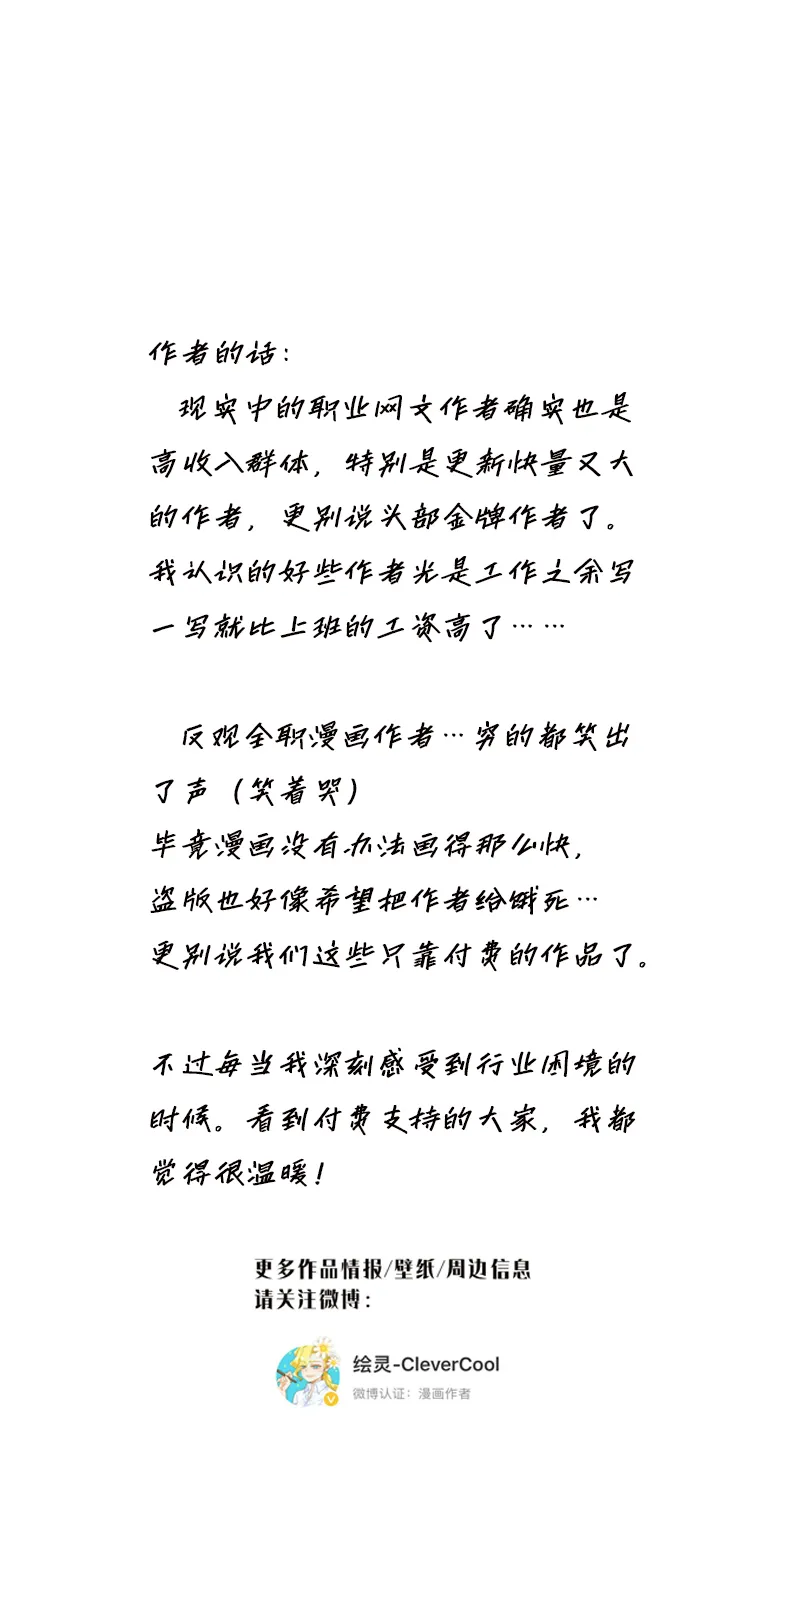 作者的话：
现实中的职业网文作者确实也是
高收入群体，特别是更新快量又大
的作者，更别说头部金牌作者了。
我认识的好些作者光是工作之余写
一写就比上班的工资高了……
反观全职漫画作者…穷的都笑出
了声（笑着哭）
毕竟漫画没有办法画得那么快，
盗版也好像希望把作者给饿死…
更别说我们这些只靠付费的作品了。
不过每当我深刻感受到行业困境的
时候。看到付费支持的大家，我都
觉得很温暖！
更多作品情报/壁纸/周边信息
请关注微博：
绘灵-CleverCool
微博认证：漫画作者